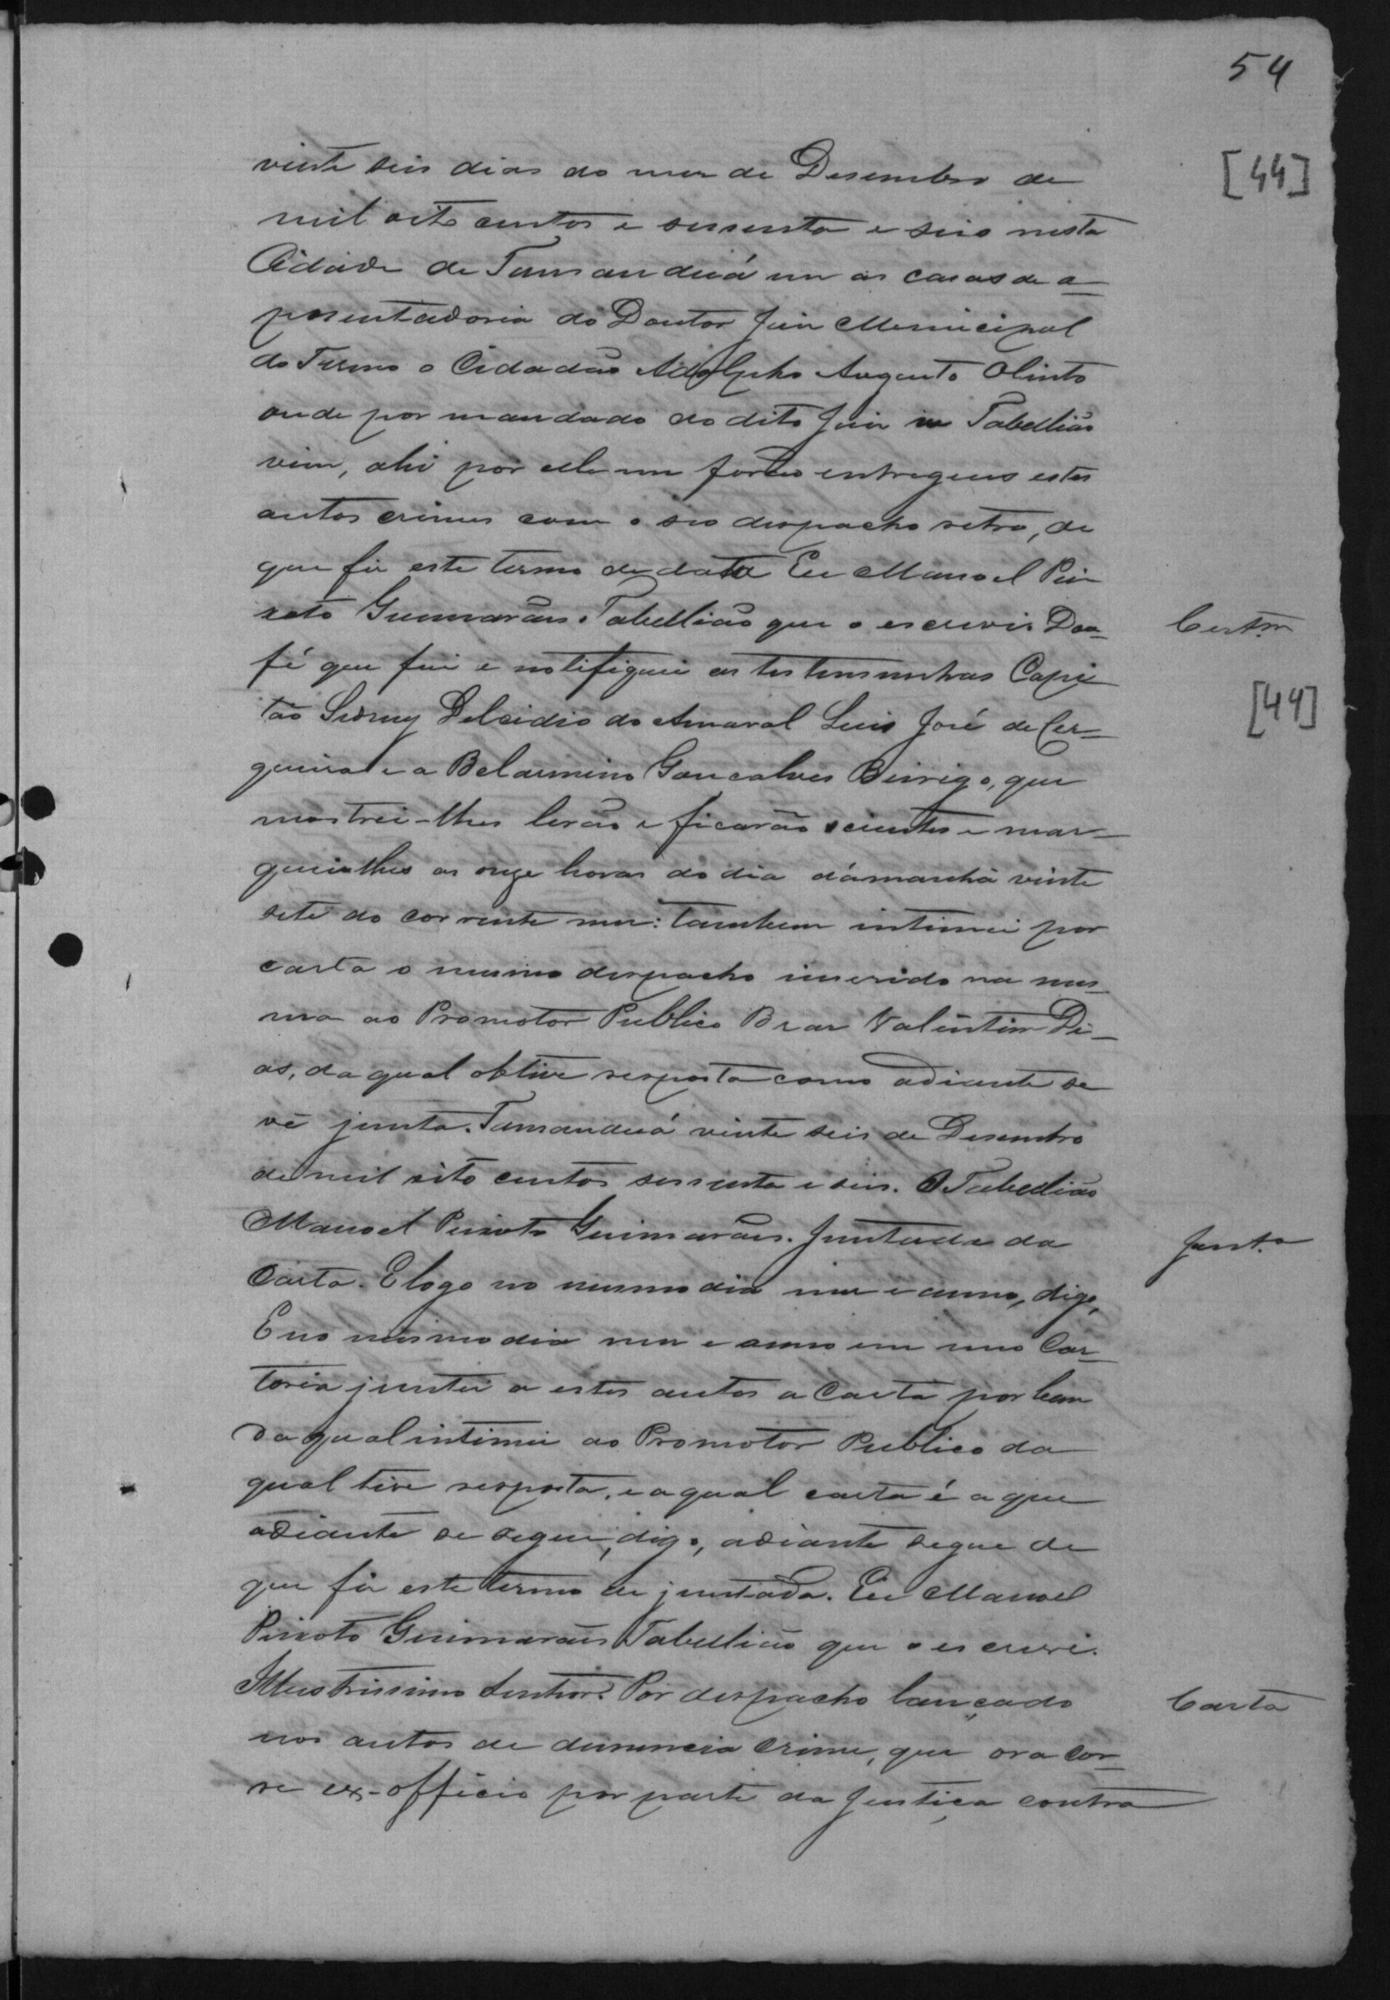 54
[44]
vinte seis dias do mez de Desembro de
mil oito centos e sessenta e seis nesta
Cidade de Tamanduá em as casas de a-
posentadoria do Doutor Juiz Municipal
do Termo o Cidadão Adolpho Augusto Olinto
onde por mandado do dito Juiz eu Tabellião
vim, ahi por elle me forão entregues estes
autos crimes com o seo despacho retro, de
que fiz este termo de data Eu Manoel Pei-
xoto Guimarães Tabellião que o escrevi. Dou
Cert.m
fé que fui e notifiquei as testemunhas Capi
[44]
tão Sidney Delcidio do Amaral Luis José de Cer-
queira e a Belarmino Gonçalves, que
mostrei-lhes lerão e ficarão scientes e mar-
quei-lhes as onze horas do dia d'amanhã vinte
sete do corrente mez: tambem intimei por
carta o mesmo despacho inserido na mes-
ma ao Promotor Publico Braz Valentim Di-
as, da qual obtive resposta como adiante se
vê junta. Tamanduá vinte seis de Desembro
de mil oito centos sessenta e seis. O Tabellião
Manoel Peixoto Guimarães. Juntada da
Junt.a
Carta. E logo no mesmo dia mez e anno, digo,
E no mesmo dia mez e anno em meo Car-
torio juntei a estes autos a Carta por bem
da qual intimei ao Promotor Publico da
qual tive resposta, e a qual carta é a que
adiante se segue, digo, adiante segue de
que fiz este termo de juntada. Eu Manoel
Peixoto Guimarães Tabellião que o escrevi.
Illustrissimo Senhor. Por despacho lançado
Carta
nos autos de denuncia crime, que ora cor-
re ex-officio por parte da Justiça contra